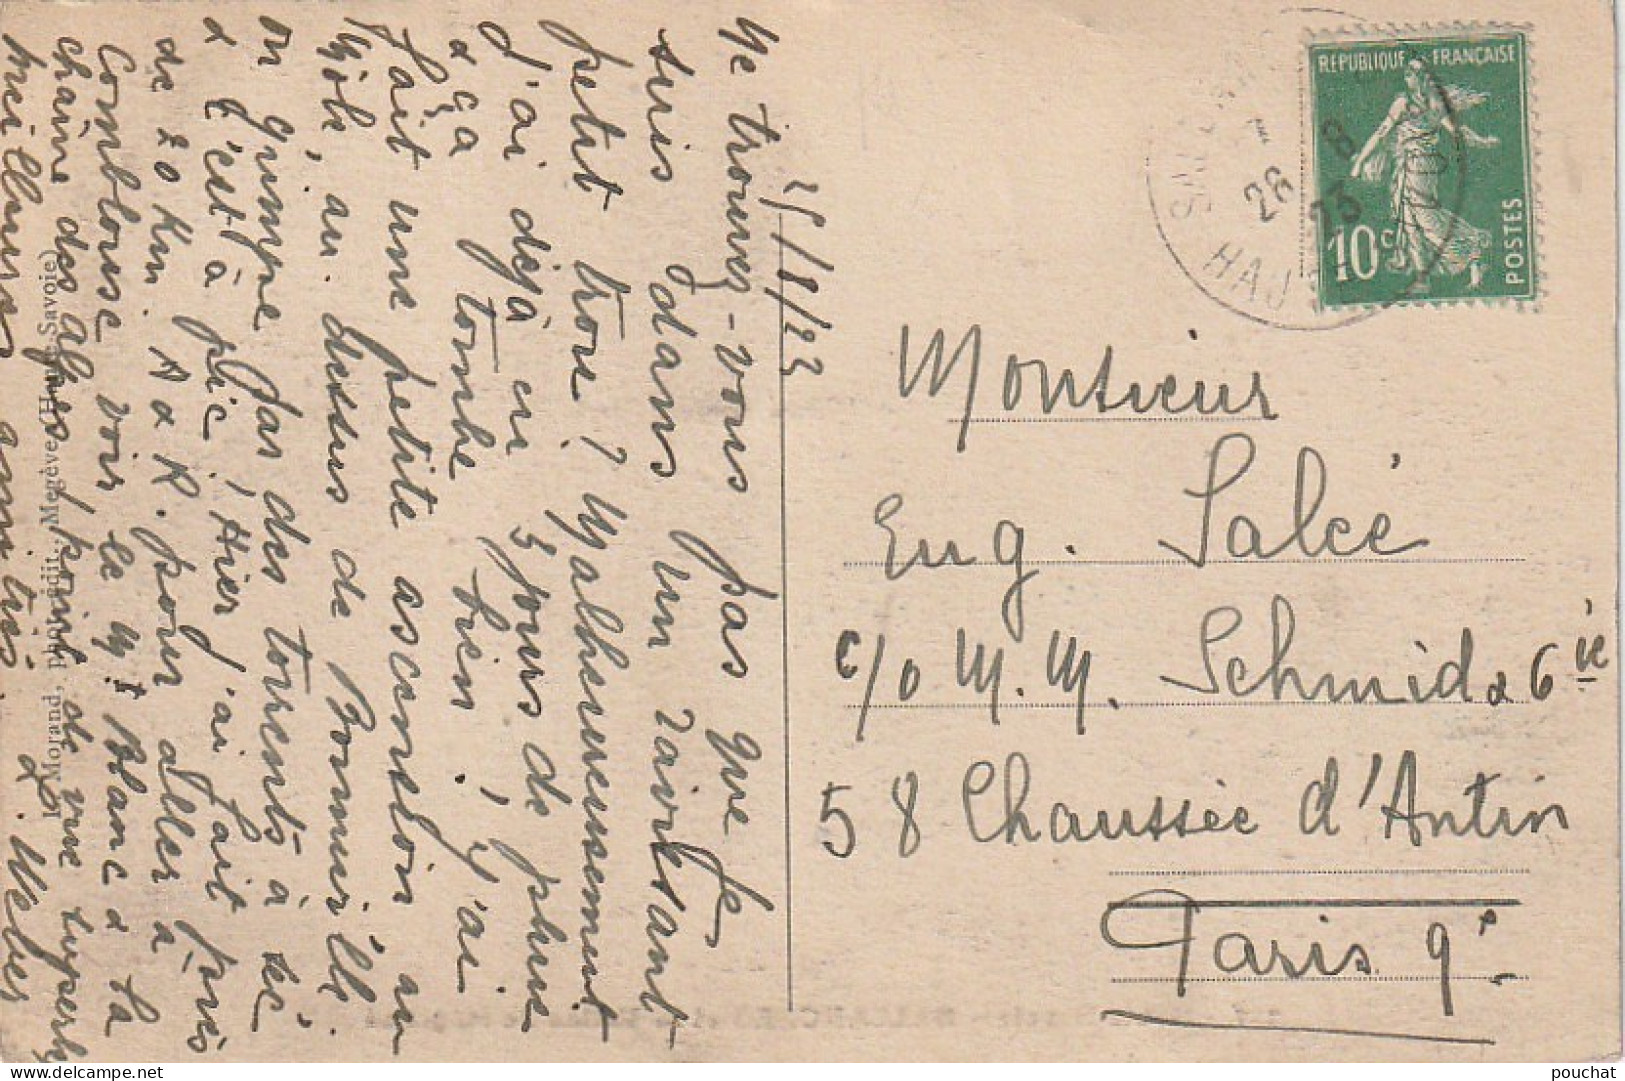 25/8/23
Ne trouvez-vous pas que je
suis dans un ravissant
petit trou? Malheureusement
j'ai déjà eu 3 jours de pluie
& ça tombe bien! J'ai
fait une petite ascension au
Môle, au dessus de Bonneville
on grimpe par des torrents à sec
& c'est à pic! Hier j'ai fait près
de 20 km. A & R. pour aller à
Combloux voir le Mt Blanc & la
chaîne des alpes, point de vue superbe
Meilleures amitiés. L. Weber
Morand, phot-édit. Megève (Haute-Savoie)
REPUBLIQUE FRANÇAISE
10c
POSTES
28
8
23
Monsieur
Eug. Salcé
c/o M.M. Schmid & Cie
58 Chaussée d'Antin
Paris 9e
pouchat